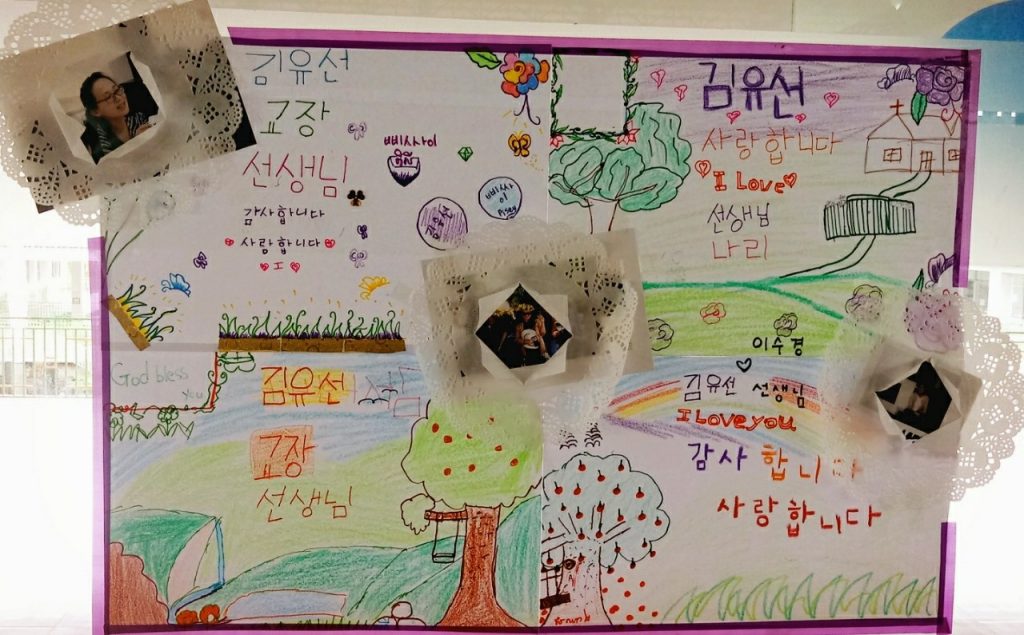 김유선
교장
선생님
감사합니다
사랑합니다
삐싸이
삐싸
이
김유선
사랑합니다
I Love
선생님
나리
God bless
you
김유선
교장
선생님
이수경
김유선 선생님
I Love you
감사합니다
사랑합니다